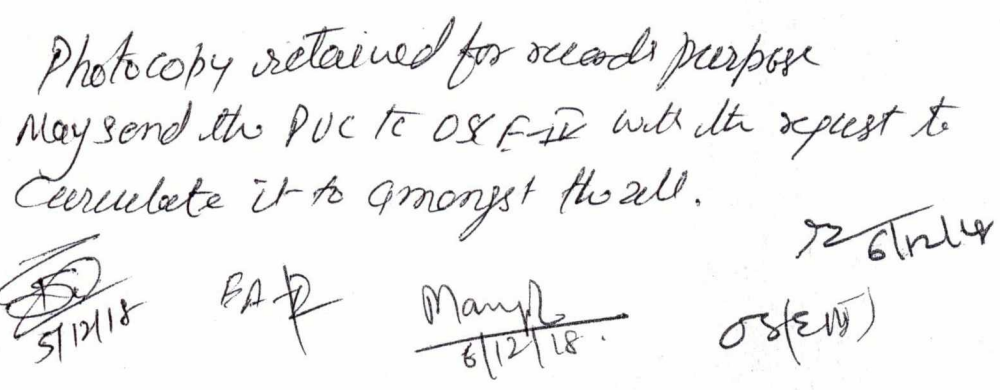 Photocopy retained for records purpose
May send the PUC to OS E-IV with the request to
Curculate it to amongst the all.
6/12/18
5/12/18
EA
6/12/18.
OS(E IV)